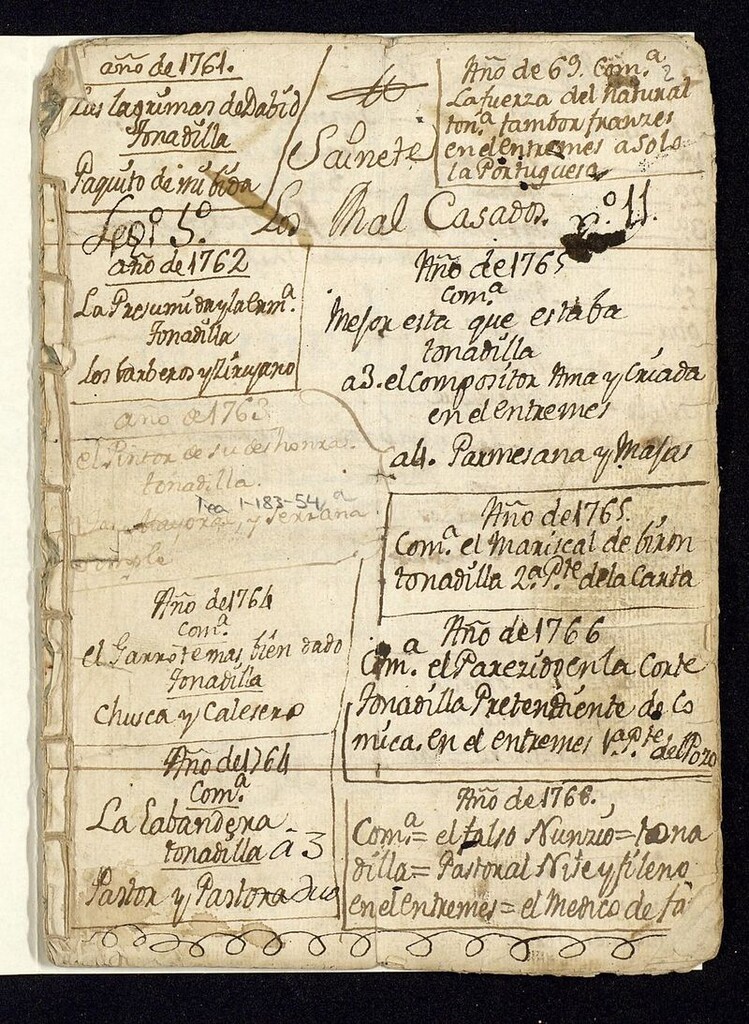 año de 1761.
Las lagrimas de Dabid
Tonadilla
Paquito de mi bida
Sainete
Año de 69. Com.ª 2
La fuerza del natural
ton.ª tambor franzes
en el entremes a solo
la Portuguesa
Leg.º 5.º
Los Mal Casados. n.º 11.
año de 1762
La Presumida y la erm.ª
Tonadilla
los barberos y Zirujano
Año de 1765
Com.ª
Mejor esta que estaba
tonadilla
a 3. el Compositor Ama y Criada
en el entremes
a 4. Parmesana y Majas
año de 1763
el Pintor de su deshonra.
tonadilla.
Tea 1-183-54
Mayoral, y serrana
simple
Año de 1765.
Com.ª el Mariscal de biron
tonadilla 2.ª P.te de la Carta
Año de 1764
Com.ª
el Garrote mas bien dado
Tonadilla
Chusca y Calesero
Año de 1766
Com.ª el Parezido en la Corte
Tonadilla Pretendiente de Co
mica. en el entremes 1.ª P.te del Pozo
Año de 1764
Com.ª
La Labandera
tonadilla a 3
Pastor y Pastora duo
Año de 1766.
Com.ª = el falso Nunzio = tona
dilla = Pastoral Nise y fileno
en el entremes = el Medico de fa